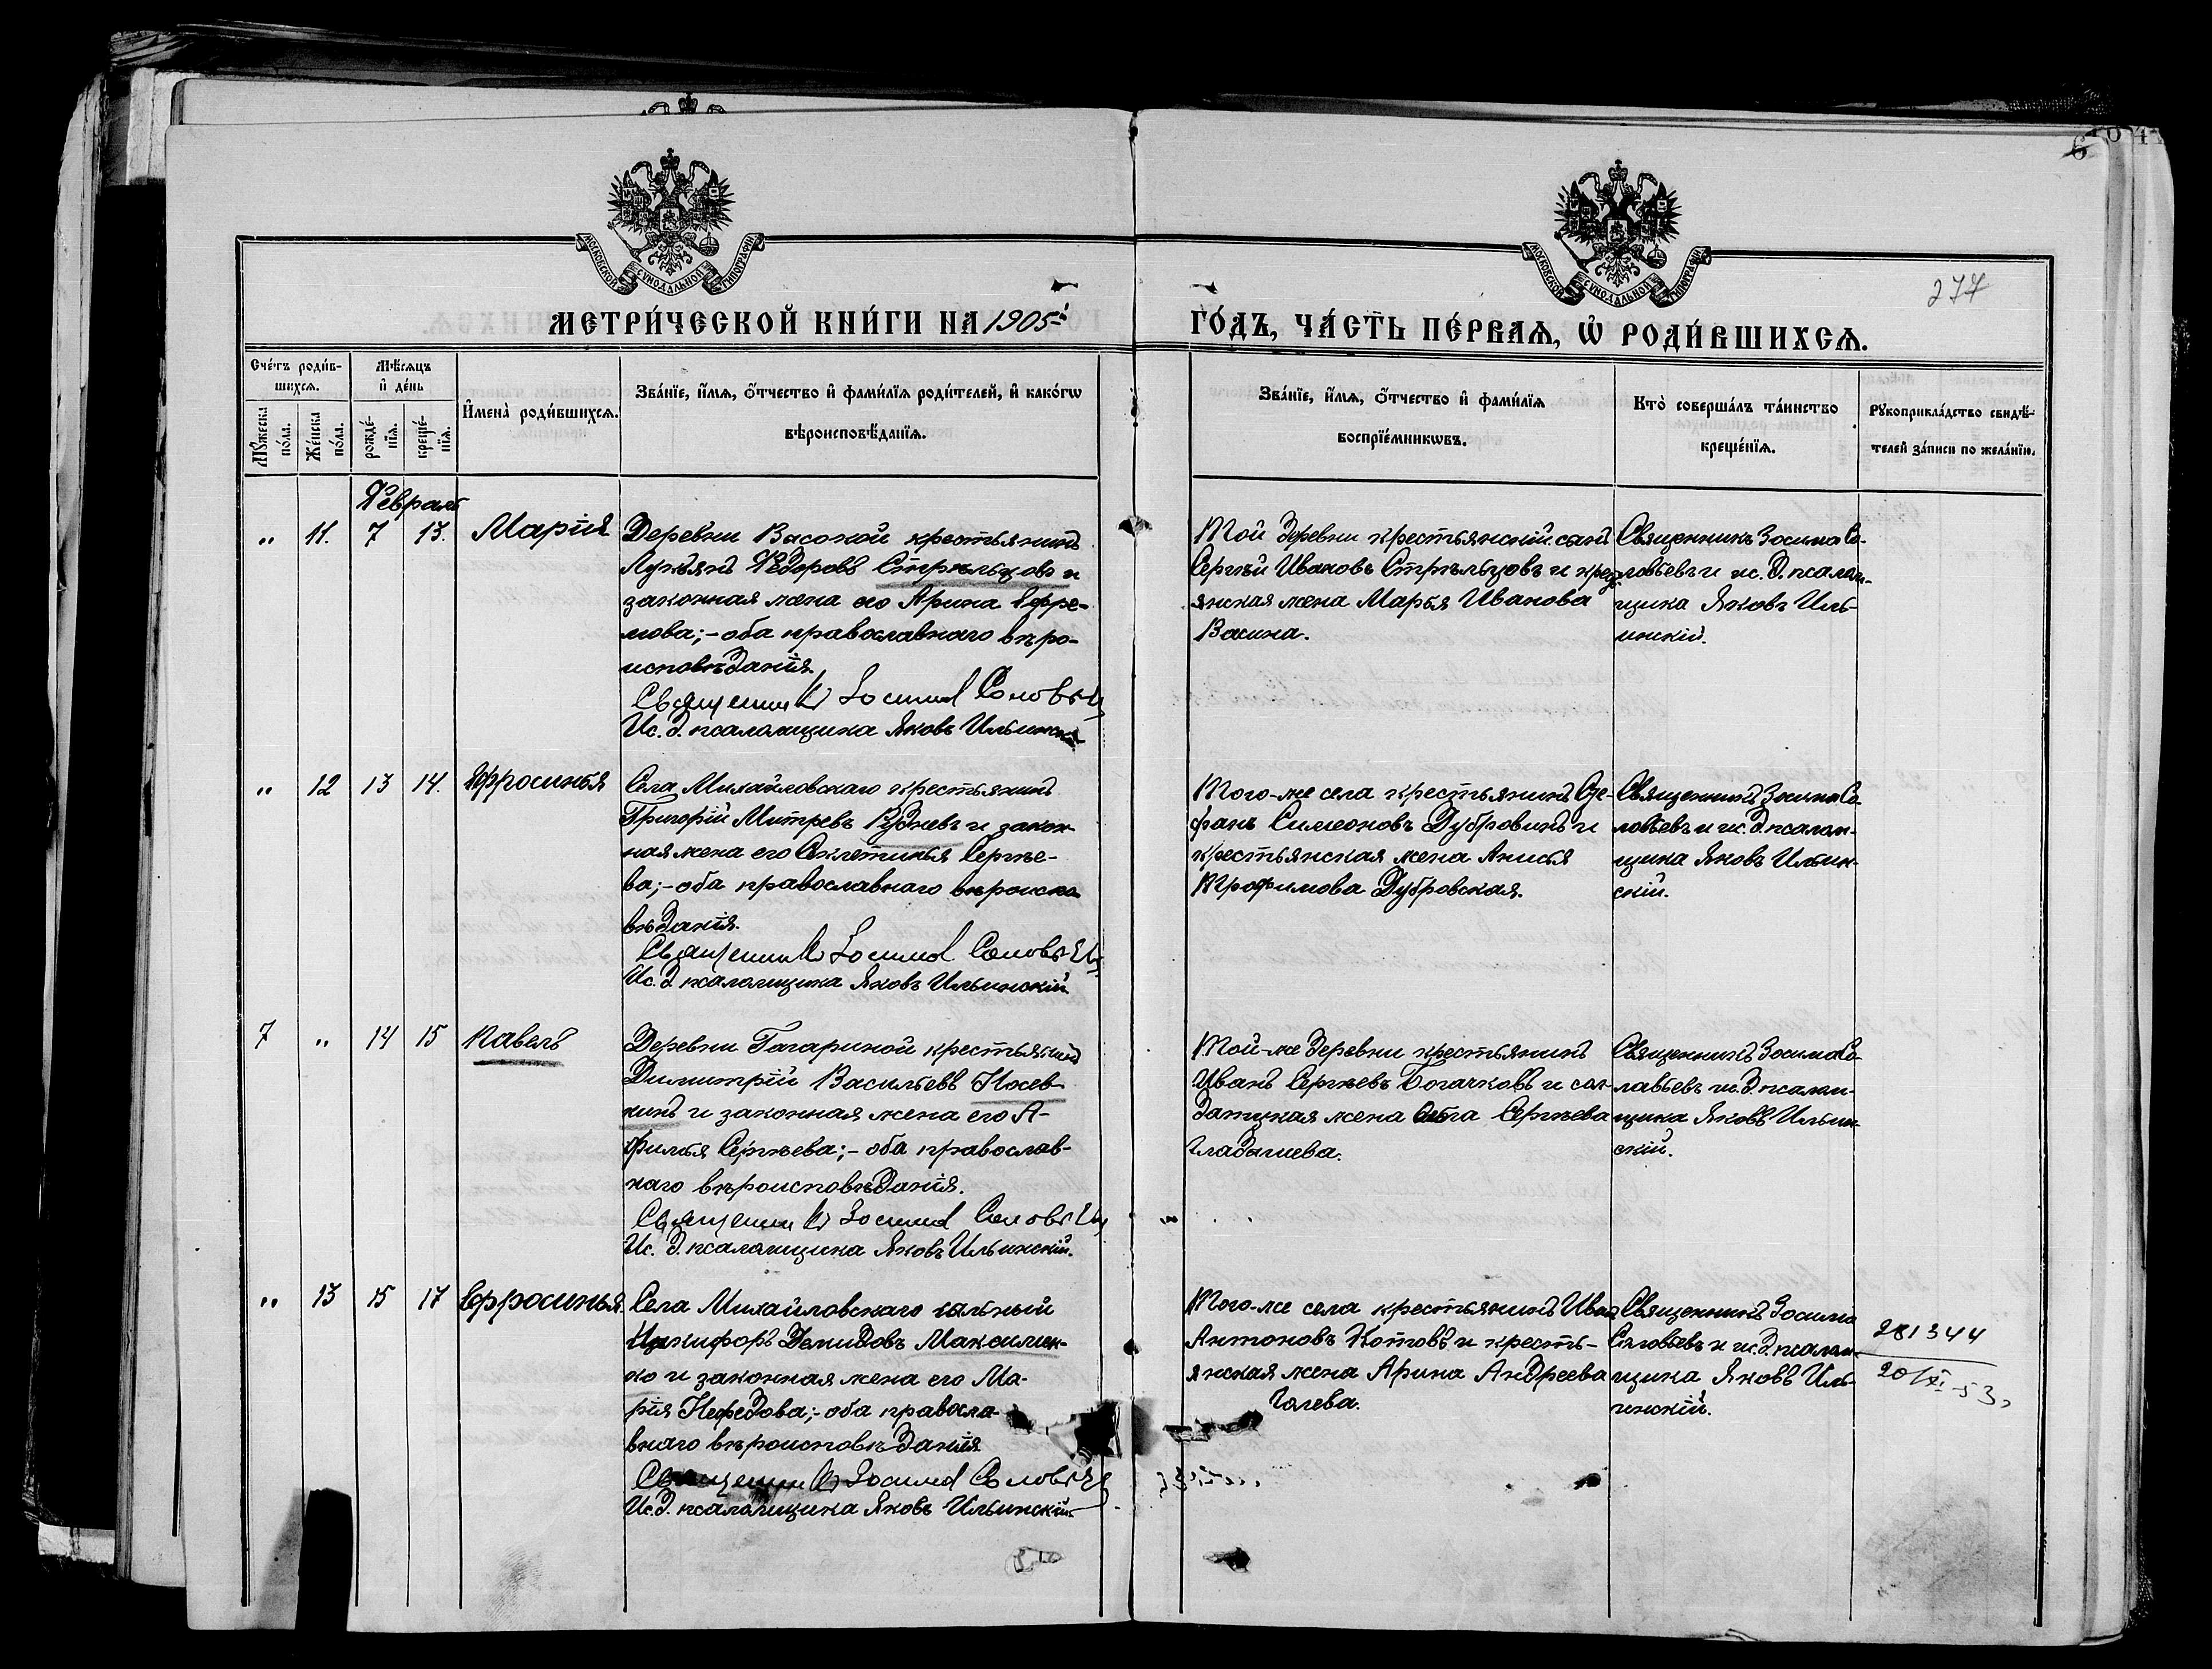 6
МОСКОВСКОЙ СѴНОДАЛЬНОЙ ТИПОГРАФІИ
МОСКОВСКОЙ СѴНОДАЛЬНОЙ ТИПОГРАФІИ
277
МЕТРИ́ЧЕСКОЙ КНИ́ГИ НА 1905й
ГО́ДЪ, ЧА́СТЬ ПЕ́РВАѦ, Ѡ҆ РОДИ́ВШИХСѦ.
Сче́тъ роди́в-
шихсѧ.
Мѣ́сѧцъ
и҆ де́нь
Мꙋ́жеска
по́ла.
Же́нска
по́ла.
рожде́-
нїѧ.
креще́-
нїѧ.
И҆мена̀ роди́вшихсѧ.
Зва́нїе, и҆́мѧ, ѻ҆́тчество и҆ фами́лїѧ роди́телей, и҆ како́гѡ
вѣроисповѣ́данїѧ.
Зва́нїе, и҆́мѧ, ѻ҆́тчество и҆ фами́лїѧ
воспрїе́мникѡвъ.
Кто̀ соверша́лъ та́инство
креще́нїѧ.
Рꙋкоприкла́дство свидѣ́-
телей за́писи по жела́нїю.
Февраль
„ 11. 7 13. Марія
Деревни Васоной крестьянинъ
Лукьянъ Ѳедоровъ Стрѣльцовъ и
законная жена его Арина Ефре-
мова;- оба православнаго вѣро-
исповѣданія.
Священникъ Зосима Соловьевъ
Ис. д. псаломщика Яковъ Ильинскій
Той деревни крестьянскій сынъ
Сергѣй Ивановъ Стрѣльцовъ и крест-
янская жена Марья Иванова
Васина.
Священникъ Зосима Со-
ловьевъ и ис. д. псалом-
щика Яковъ Иль-
инскій.
„ 12 13 14. Ефросинья
Села Михайловскаго крестьянинъ
Григорій Митревъ Рудневъ и закон-
ная жена его Секлетинья Сергѣе-
ва;- оба православнаго вѣроиспо
вѣданія.
Священникъ Зосима Соловьевъ
Ис. д псаломщика Яковъ Ильинскій
Того-же села крестьянинъ Сте-
фанъ Симеоновъ Дубровинъ и
крестьянская жена Анисья
Трофимова Дубровская.
Священникъ Зосима Со-
ловьевъ и ис. д. псалом-
щика Яковъ Ильин-
скій.
7 „ 14 15 Павелъ
Деревни Гагариной крестьянинъ
Димитрій Васильевъ Носев-
кинъ и законная жена его А-
филья Сергѣева;- оба православ-
наго вѣроисповѣданія.
Священникъ Зосима Соловьевъ
Ис. д. псаломщика Яковъ Ильинскій.
Той-же деревни крестьянинъ
Иванъ Сергѣевъ Богачковъ и сол-
датцкая жена Ольга Сергѣева
Гладышева.
Священникъ Зосима Со-
ловьевъ ис. д. псалом-
щика Яковъ Ильин-
скій.
„ 13 15 17 Ефросинья.
Села Михайловскаго
Никифоръ Демидовъ Максимен-
ко и законная жена его Ма-
рія Нефедова;- оба правосла-
внаго вѣроисповѣданія
Священникъ Зосима Соловьевъ
Ис. д. псаломщика Яковъ Ильинскій
Того-же села крестьянинъ Иванъ
Антоновъ Котовъ и кресть-
янская жена Арина Андреева
Голева.
Священникъ Зосима
Соловьевъ и ис. д. псалом-
щика Яковъ Иль-
инскій.
281344
20/XI-53